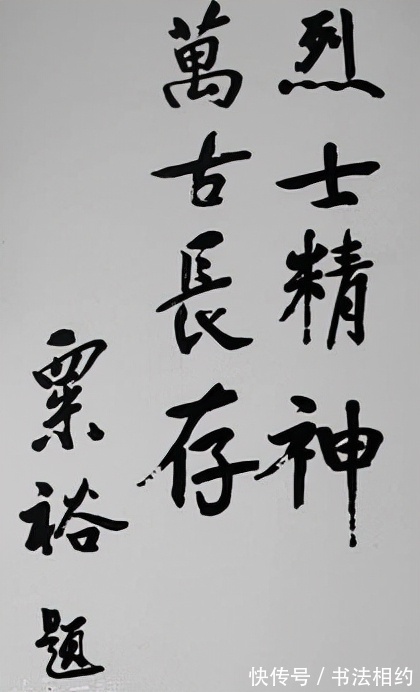 烈士精神
萬古長存
粟裕題
快传号/书法相约